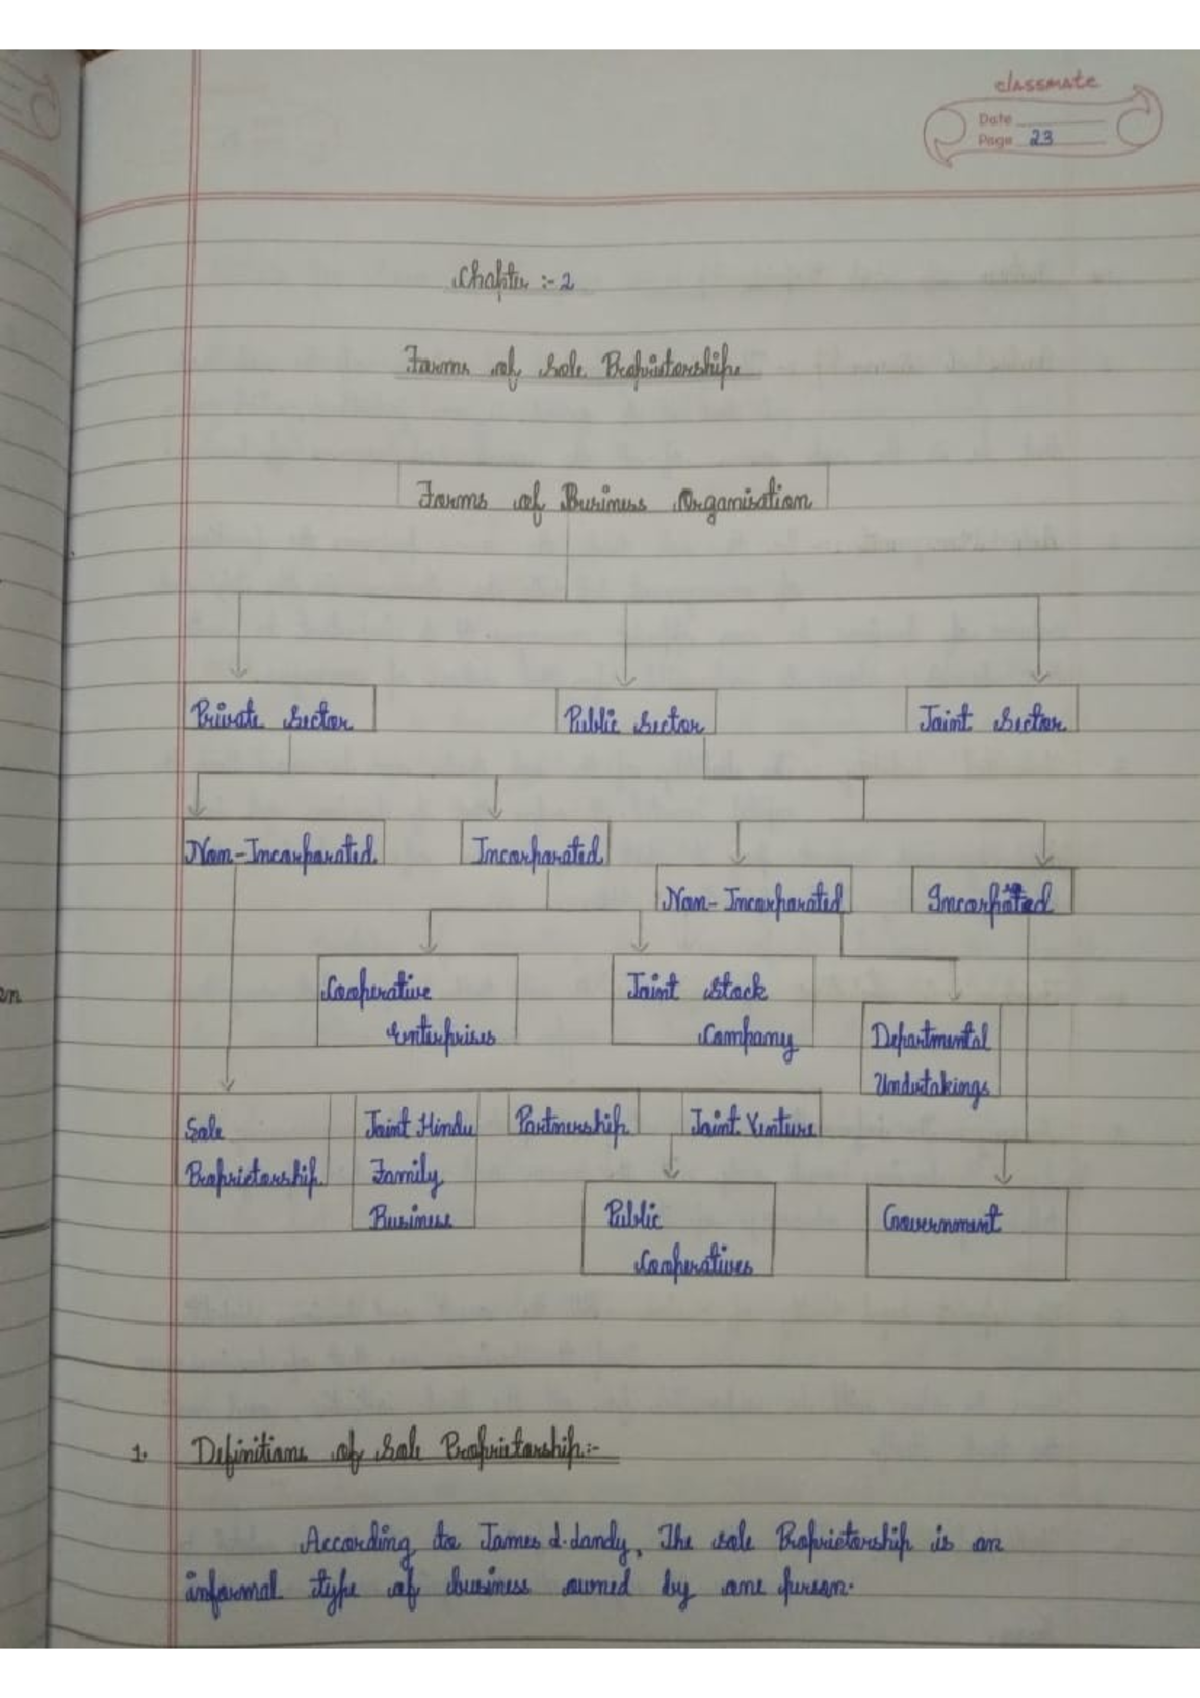 classmate
Date
Page 23
Chapter :- 2
Forms of Sole Proprietorship.
Forms of Business Organisation
Private Sector
Public Sector
Joint Sector
Non-Incorporated
Incorporated
Non-Incorporated
Incorporated
Cooperative
Enterprises
Joint Stock
Company
Departmental
Undertakings
Sole
Proprietorship
Joint Hindu
Family
Business
Partnership
Joint Venture
Public
Cooperatives
Government
1. Definitions of Sole Proprietorship:-
According to James d.dandy, The sole Proprietorship is an
informal type of business owned by one person.